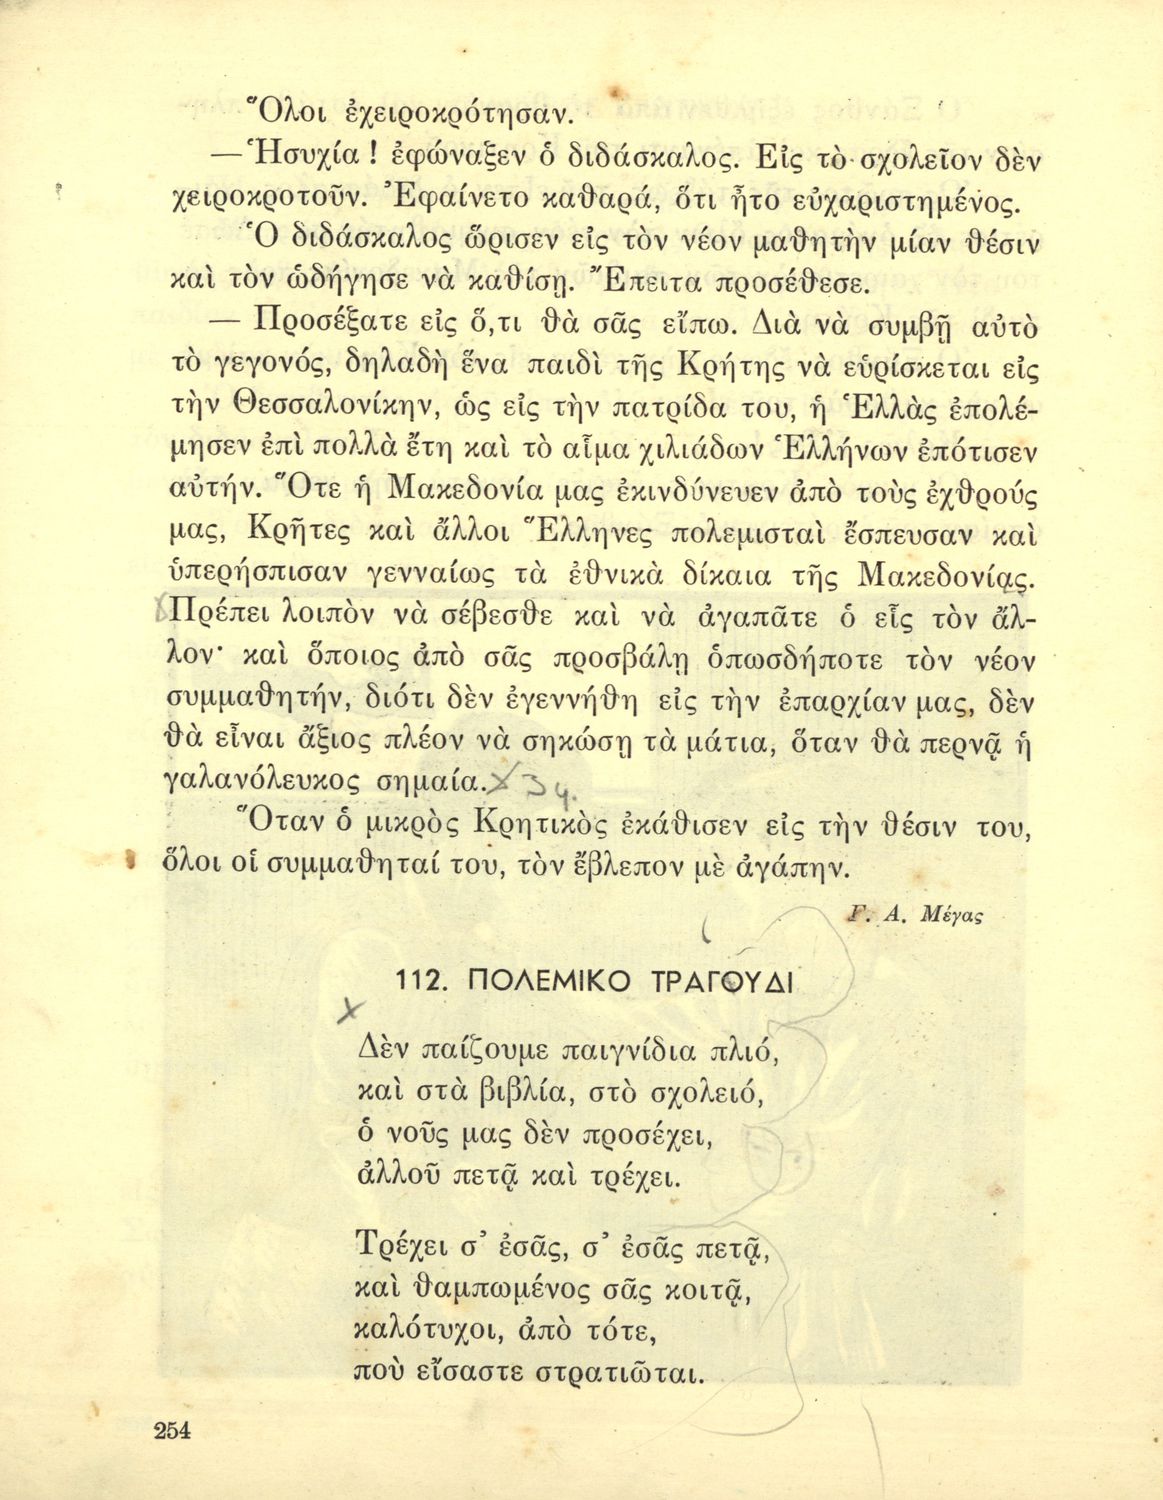 Ὅλοι ἐχειροκρότησαν.
— Ἡσυχία ! ἐφώναξεν ὁ διδάσκαλος. Εἰς τὸ σχολεῖον δὲν
χειροκροτοῦν. Ἐφαίνετο καθαρά, ὅτι ἦτο εὐχαριστημένος.
Ὁ διδάσκαλος ὥρισεν εἰς τὸν νέον μαθητὴν μίαν θέσιν
καὶ τὸν ὡδήγησε νὰ καθίσῃ. Ἔπειτα προσέθεσε.
— Προσέξατε εἰς ὅ,τι θὰ σᾶς εἴπω. Διὰ νὰ συμβῇ αὐτὸ
τὸ γεγονός, δηλαδὴ ἕνα παιδὶ τῆς Κρήτης νὰ εὑρίσκεται εἰς
τὴν Θεσσαλονίκην, ὡς εἰς τὴν πατρίδα του, ἡ Ἑλλὰς ἐπολέ-
μησεν ἐπὶ πολλὰ ἔτη καὶ τὸ αἷμα χιλιάδων Ἑλλήνων ἐπότισεν
αὐτήν. Ὅτε ἡ Μακεδονία μας ἐκινδύνευεν ἀπὸ τοὺς ἐχθρούς
μας, Κρῆτες καὶ ἄλλοι Ἕλληνες πολεμισταὶ ἔσπευσαν καὶ
ὑπερήσπισαν γενναίως τὰ ἐθνικὰ δίκαια τῆς Μακεδονίας.
Πρέπει λοιπὸν νὰ σέβεσθε καὶ νὰ ἀγαπᾶτε ὁ εἷς τὸν ἄλ-
λον· καὶ ὅποιος ἀπὸ σᾶς προσβάλῃ ὁπωσδήποτε τὸν νέον
συμμαθητήν, διότι δὲν ἐγεννήθη εἰς τὴν ἐπαρχίαν μας, δὲν
θὰ εἶναι ἄξιος πλέον νὰ σηκώσῃ τὰ μάτια, ὅταν θὰ περνᾷ ἡ
γαλανόλευκος σημαία.
Ὅταν ὁ μικρὸς Κρητικὸς ἐκάθισεν εἰς τὴν θέσιν του,
ὅλοι οἱ συμμαθηταί του, τὸν ἔβλεπον μὲ ἀγάπην.
Γ. Α. Μέγας
112. ΠΟΛΕΜΙΚΟ ΤΡΑΓΟΥΔΙ
Δὲν παίζουμε παιγνίδια πλιό,
καὶ στὰ βιβλία, στὸ σχολειό,
ὁ νοῦς μας δὲν προσέχει,
ἀλλοῦ πετᾷ καὶ τρέχει.
Τρέχει σ᾽ ἐσᾶς, σ᾽ ἐσᾶς πετᾷ,
καὶ θαμπωμένος σᾶς κοιτᾷ,
καλότυχοι, ἀπὸ τότε,
ποὺ εἴσαστε στρατιῶται.
254